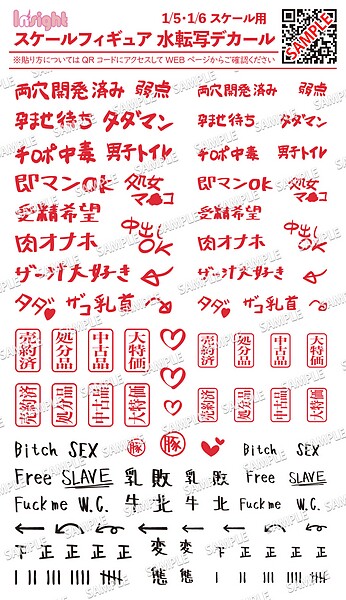 Insight 1/5・1/6 スケール用
スケールフィギュア 水転写デカール
※貼り方については QR コードにアクセスして WEB ページからご確認ください
SAMPLE
両穴開発済み 弱点 両穴開発済み 弱点
孕ませ待ち タダマン 孕ませ待ち タダマン
チロポ中毒 男子トイレ チロポ中毒 男子トイレ
即マンOK 処女マ コ 即マンOK 処女マ コ
受精希望 中出しOK 受精希望 中出しOK
肉オナホ 肉オナホ
ザー汁大好き ザー汁大好き
タダ ザコ乳首 タダ ザコ乳首
売約済 処分品 中古品 大特価 売約済 処分品 中古品 大特価
売約済 処分品 中古品 大特価 売約済 処分品 中古品 大特価
豚 豚
Bitch SEX Bitch SEX
Free SLAVE 乳 敗 乳 敗 Free SLAVE
Fuck me W.C. 牛 北 牛 北 Fuck me W.C.
下 正 正 正 変 変 下 正 正 正
態 態